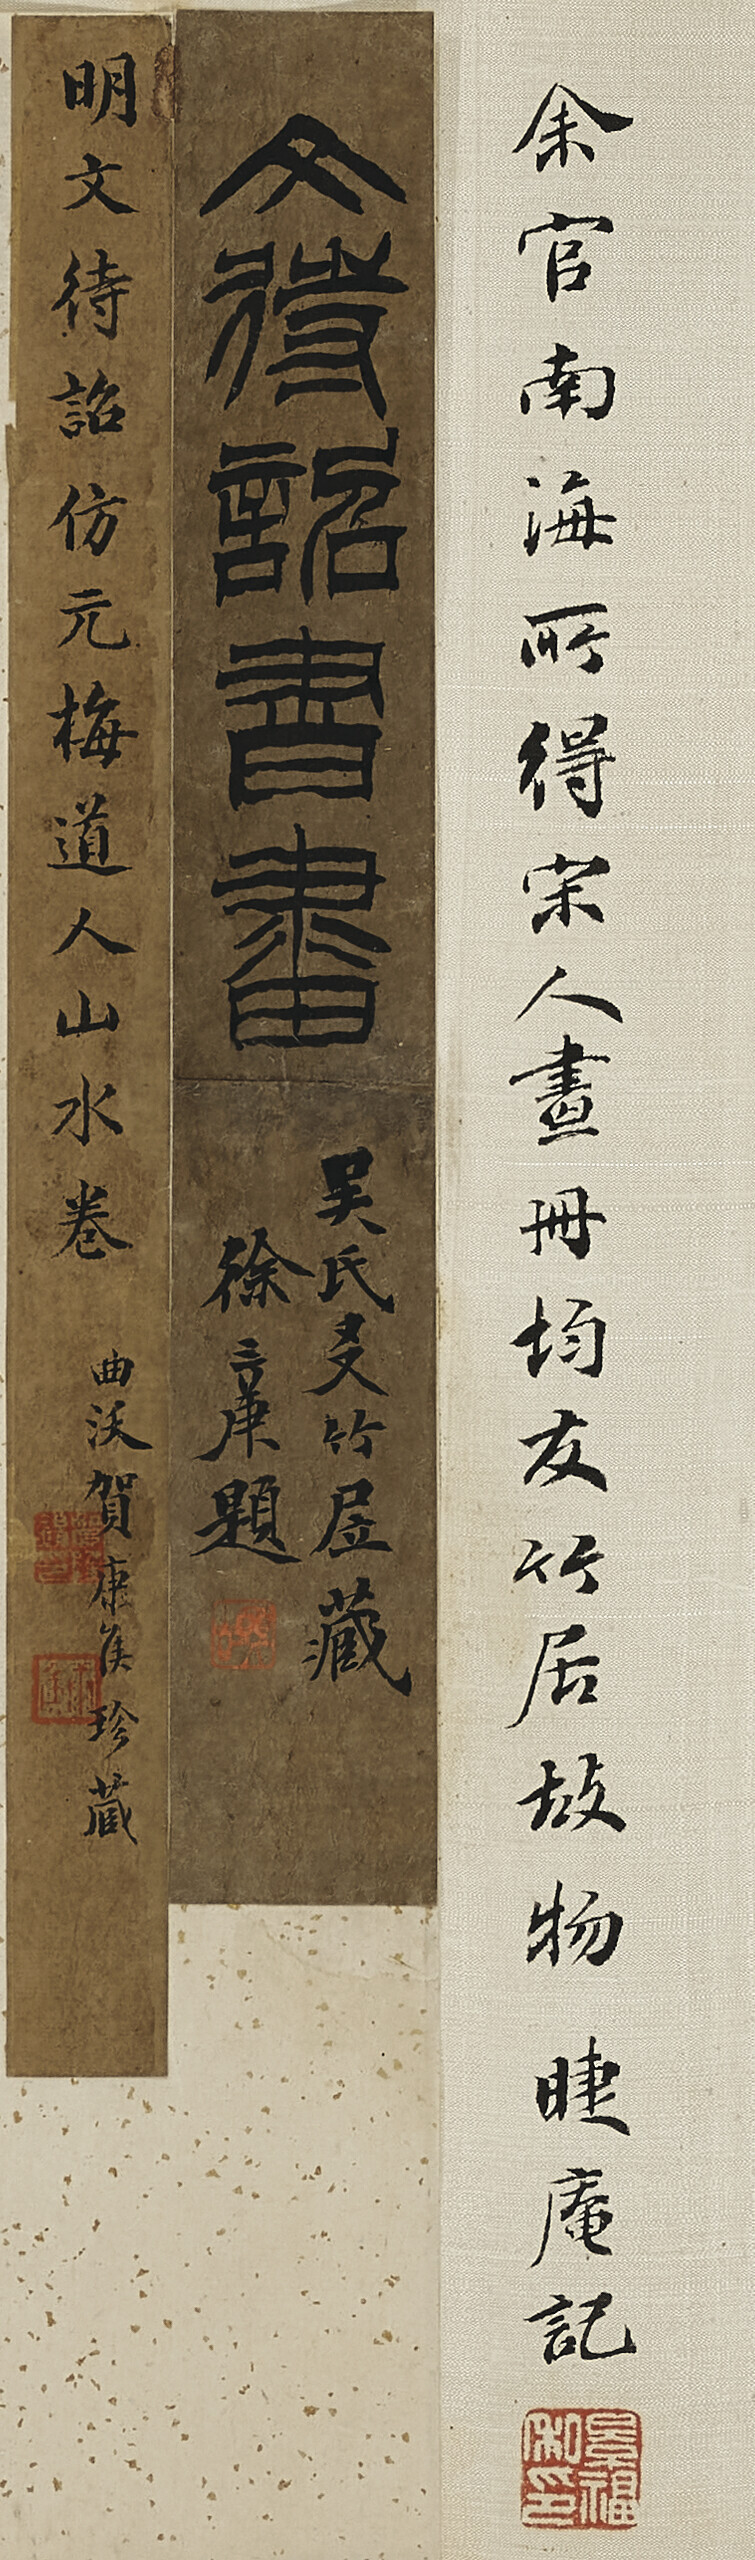 余官南海所得宋人畫冊均友竹居故物 睫庵記
景福私印
文待詔書畫
吳氏友竹居藏
徐三庚題
明文待詔仿元梅道人山水卷
曲沃賀康侯珍藏